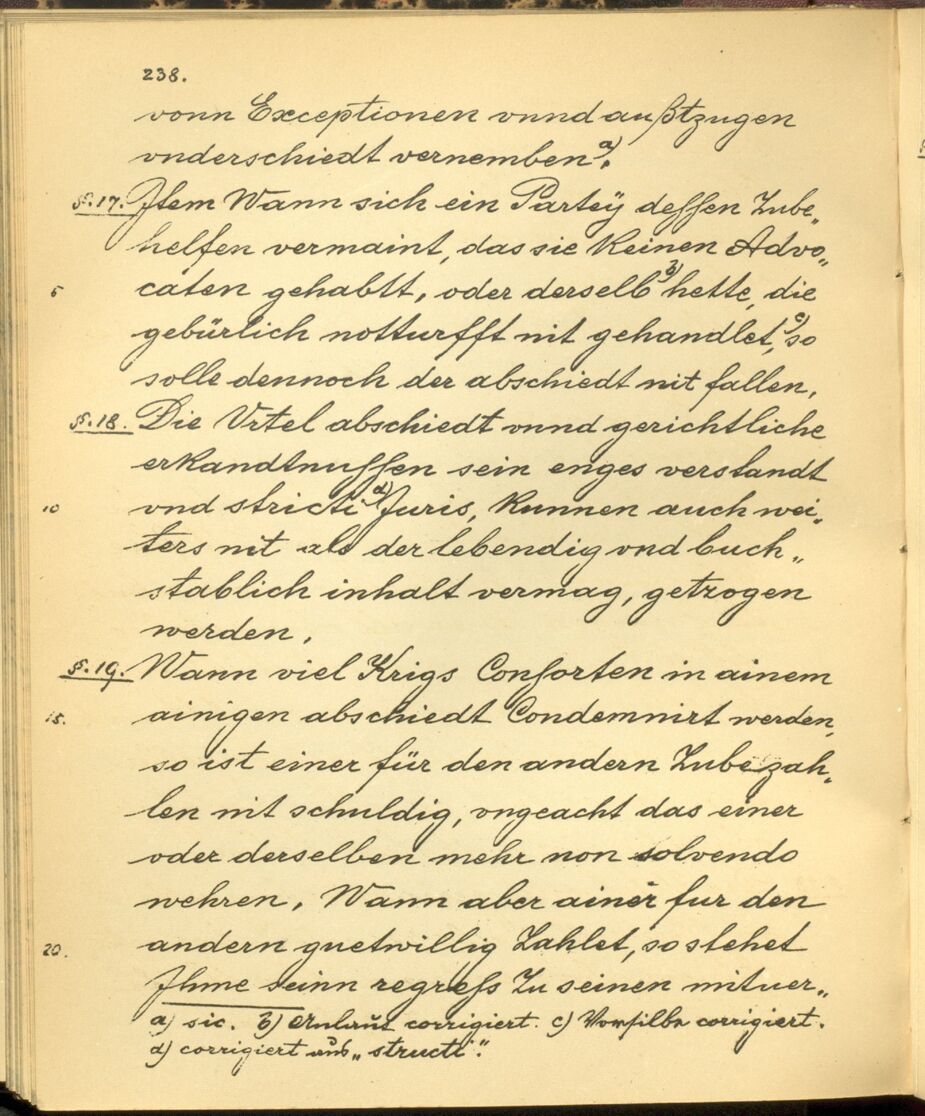 238.
vonn Exceptionen vnnd außtzugen
vnderschiedt vernemben a).
§. 17. Jtem Wann sich ein Parteÿ dessen Zube„
helfen vermaint, das sie Keinen Advo„
5 caten gehabtt, oder derselb b) hette, die
gebürlich notturfft nit gehandlet, c) so
solle dennoch der abschiedt nit fallen.
§. 18. Die Vrtel abschiedt vnnd gerichtliche
erkandtnussen sein enges verstandt
10 vnd stricti d) Juris, Kunnen auch wei„
ters nit als der lebendig vnd buch„
stablich inhalt vermag, getzogen
werden.
§. 19. Wann viel Krigs Consorten in ainem
15. ainigen abschiedt Condemnirt werden,
so ist einer für den andern Zubezah„
len nit schuldig, vngeacht das einer
oder derselben mehr non solvendo
wehren. Wann aber ainer fur den
20. andern guetwillig Zahlet, so stehet
Jhme seinn regress Zu seinen mituer„
a) sic. b) Anlaut corrigiert. c) Vorsilbe corrigiert.
d) corrigiert aus „structi".